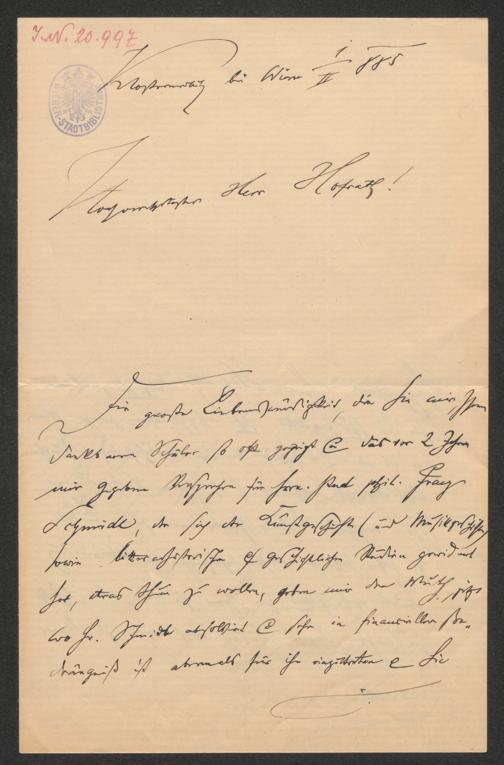 I.N. 20.997
STADTBIBLIOTHEK
Klosterneuburg bei Wien 1/II 885
Hochverehrtester Herr Hofrath!
Die große Liebenswürdigkeit, die Sie mir Ihrem
dankbaren Schüler so oft gezeigt & das vor 2 Jahren
mir gegebene Versprechen für Herrn Stud. phil. Franz
Schmidt, der sich der Kunstgeschichte (und Musikgeschichte
sowie geschichtlichen Studien gewidmet
hat, etwas thun zu wollen, geben mir den Muth, jetzt
wo Hr. Schmidt absolvirt & sehr in financieller Be-
drängniß ist abermals für ihn einzutreten & Sie